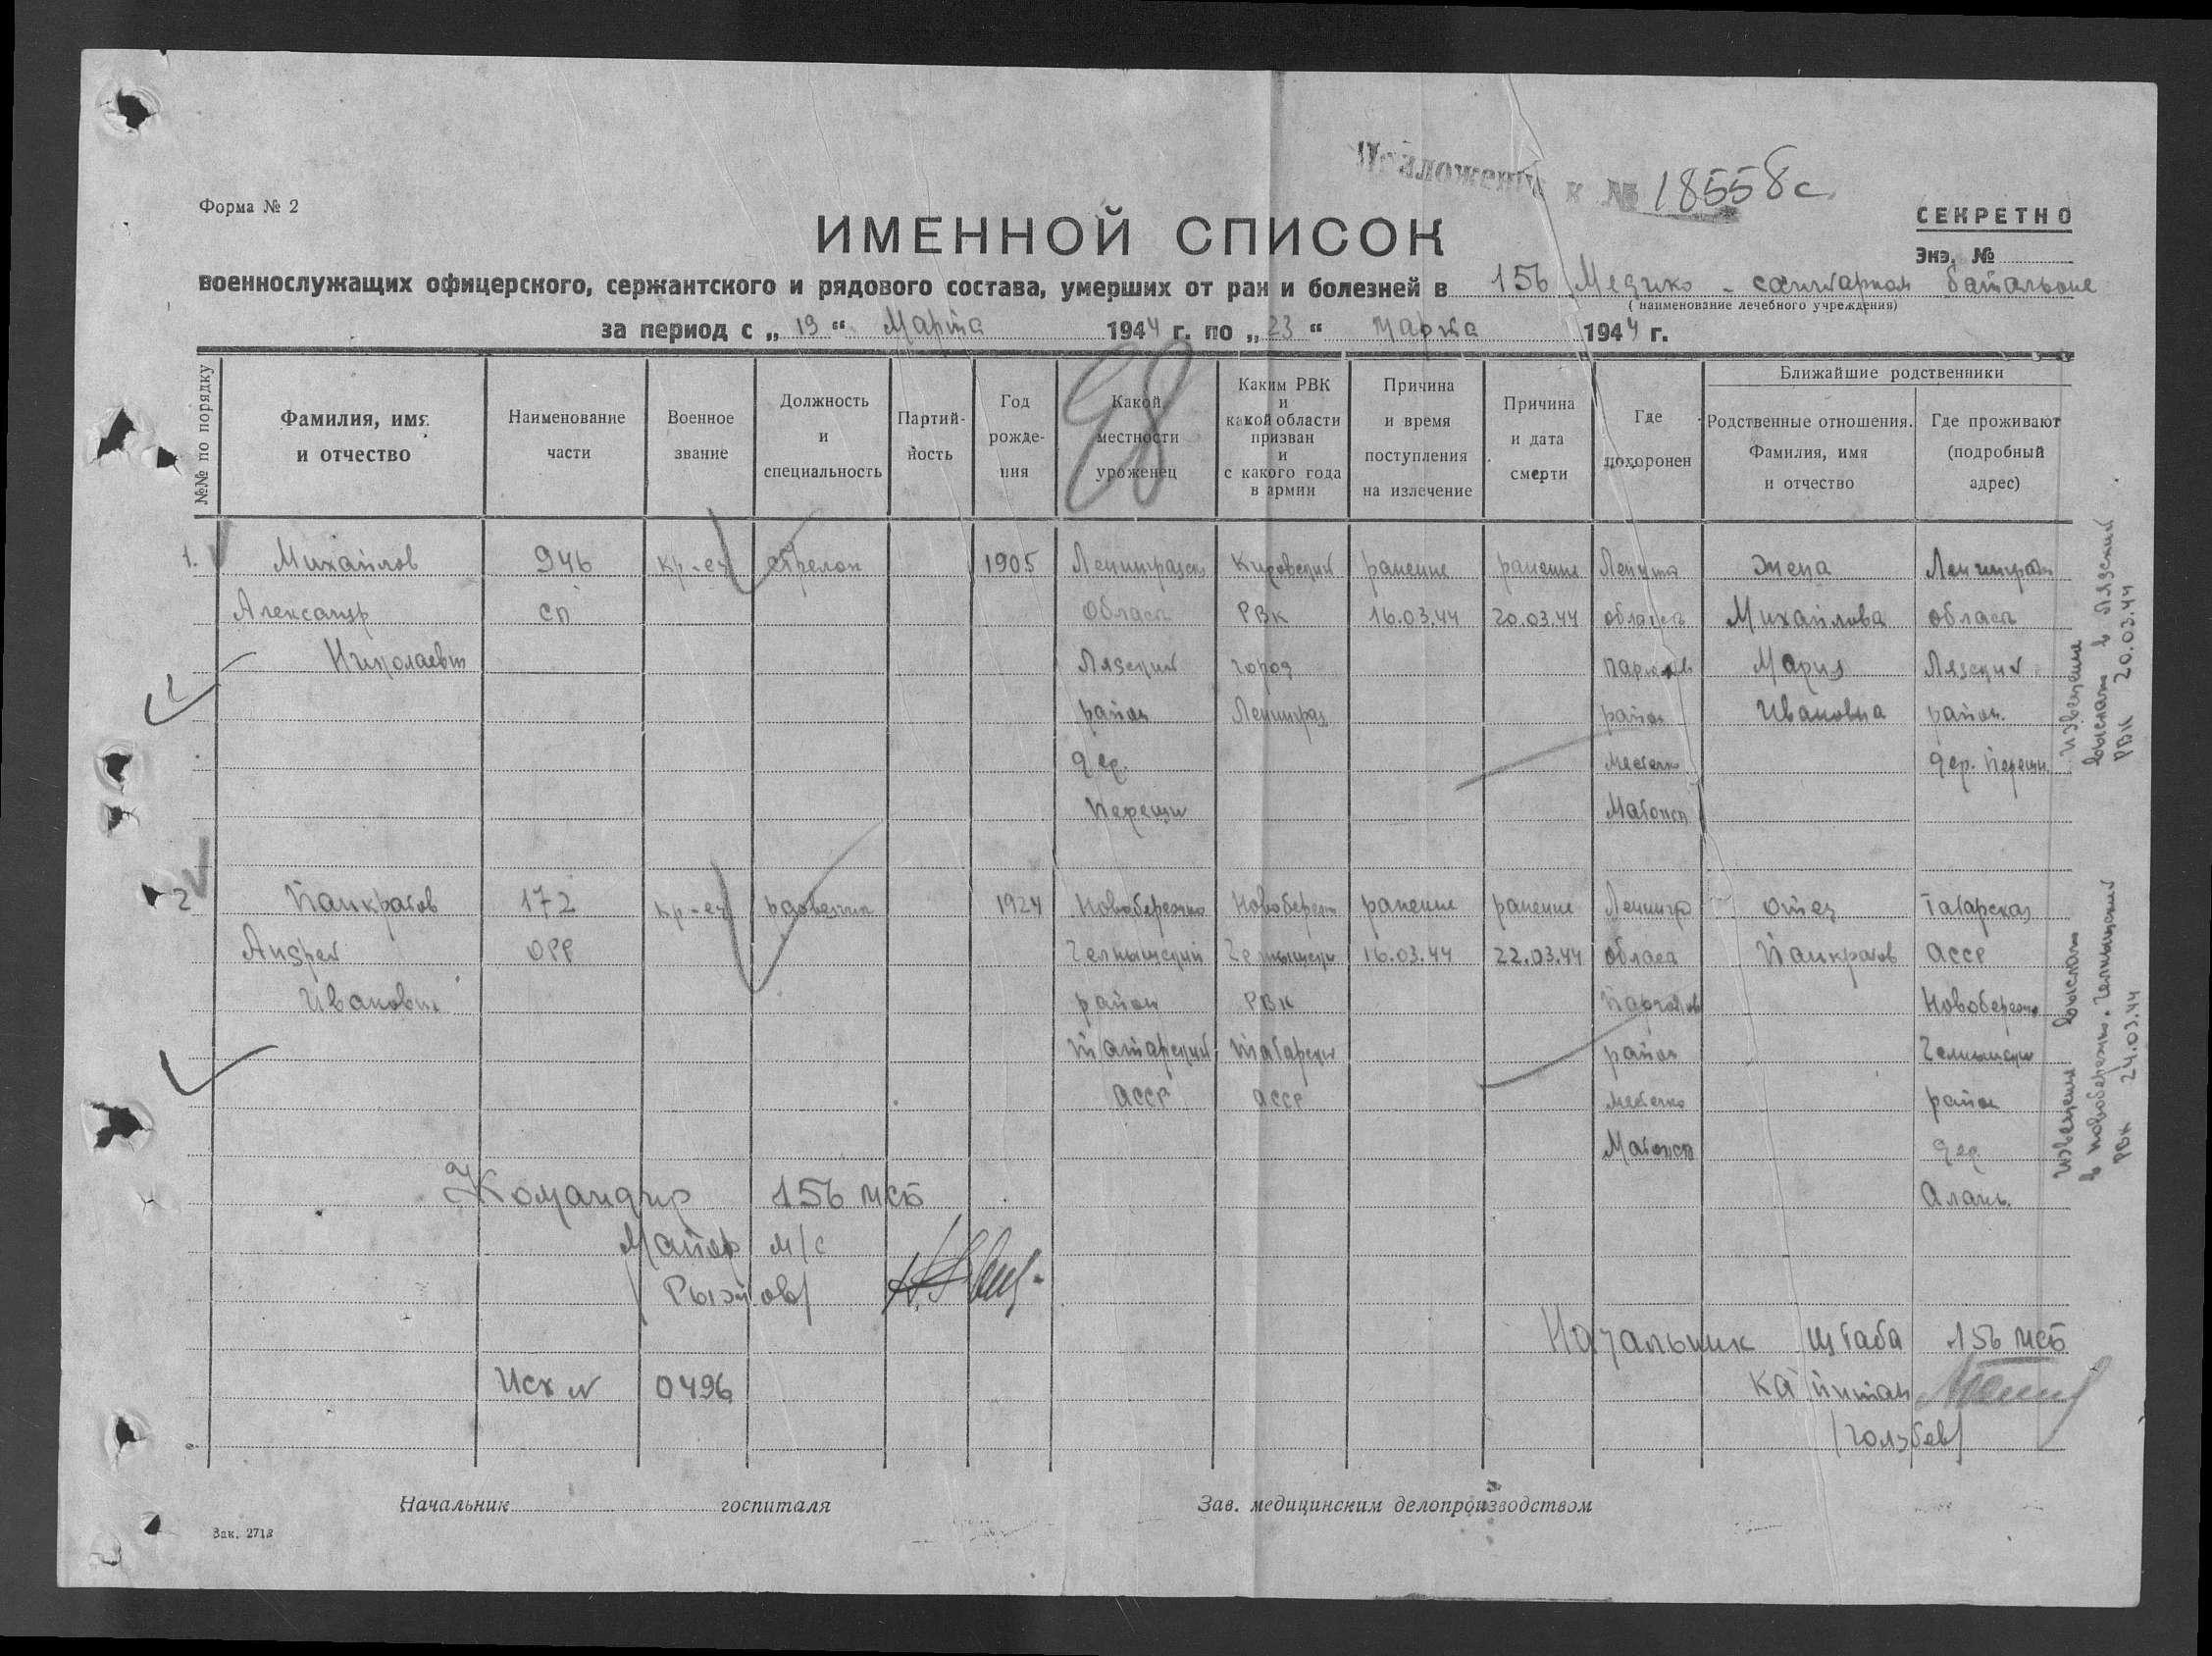 Приложение к № 18558с.
Форма № 2
СЕКРЕТНО
ИМЕННОЙ СПИСОК
Экз. №
военнослужащих офицерского, сержантского и рядового состава, умерших от ран и болезней в 156 Медико - санитарном батальоне
( наименование лечебного учреждения)
за период с „ 19 “ Марта 1944 г. по „ 23 “ марта 1944 г.
98
№№ по порядку
Фамилия, имя и отчество
Наименование части
Военное звание
Должность и специальность
Партий- ность
Год рожде- ния
Какой местности уроженец
Каким РВК и какой области призван и с какого года в армии
Причина и время поступления на излечение
Причина и дата смерти
Где похоронен
Ближайшие родственники
Родственные отношения. Фамилия, имя и отчество
Где проживают (подробный адрес)
1. Михайлов 946 кр-ец стрелок 1905 Ленинградск Кировский ранение ранение Ленингр жена Ленинградск
Александр сп Област РВК 16.03.44 20.03.44 област Михайлова област
Николаевич Лядский город Мария Лядский
район Ленинград район Ивановна район.
дер. местечко дер. Перещи.
Перещи
2 Панкратов 172 кр-ец разведчик 1924 Новобережно Новобережн ранение ранение Ленингр отец Татарская
Андрей ОРР Челнынский Челнынски 16.03.44 22.03.44 област Панкратов АССР
Иванович район РВК Новобережно
Татарский Татарски район Челнынски
АССР АССР местечко район
дер
Алань.
Извещение выслано в Лядский РВК 20.03.44
Извещение выслано в Новобережн. Челнынский РВК 24.03.44
Командир 156 мсб
Майор м/с
/Рыжков/
Начальник штаба 156 мсб
Исх № 0496
капитан
/Голубев/
Начальник госпиталя
Зав. медицинским делопроизводством
Зак. 2713